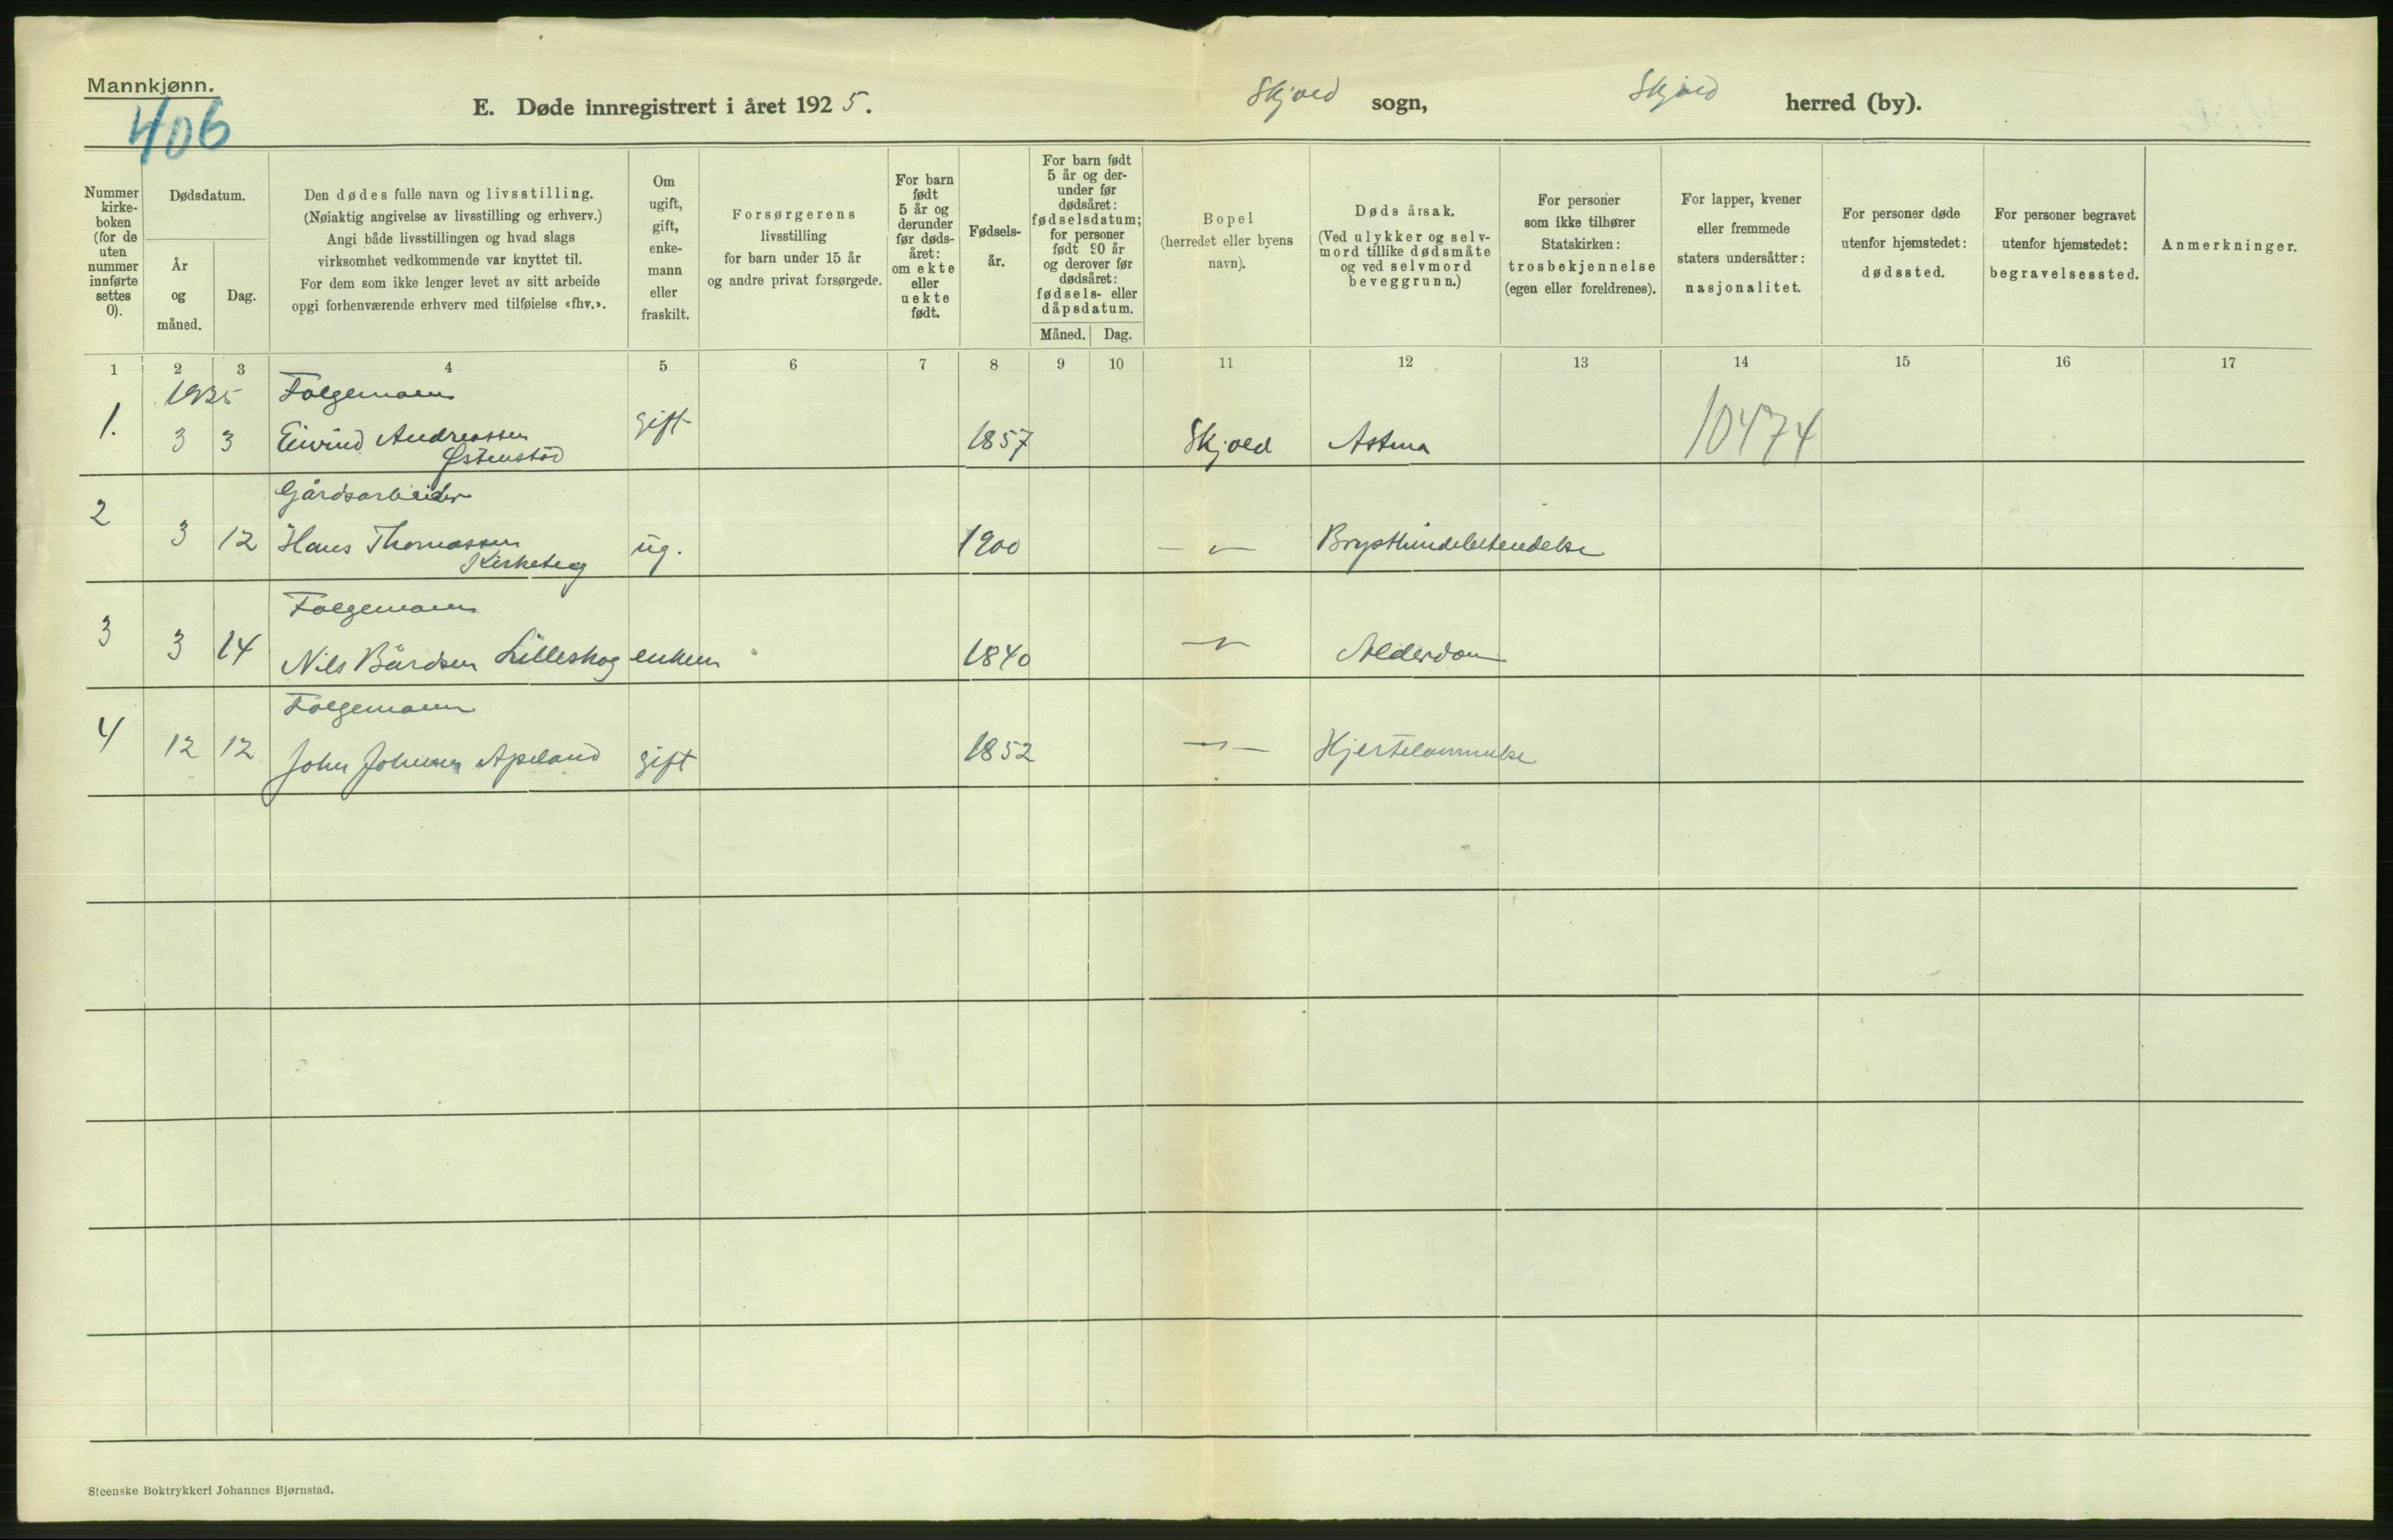 Mannkjønn.
406
E. Døde innregistrert i året 1925.
Skjold sogn,
Skjold herred (by).
Nummer kirke- boken (for de uten nummer innførte settes 0).
Dødsdatum.
År og måned.
Dag.
Den dødes fulle navn og livsstilling.
(Nøiaktig angivelse av livsstilling og erhverv.)
Angi både livsstillingen og hvad slags
virksomhet vedkommende var knyttet til.
For dem som ikke lenger levet av sitt arbeide
opgi forhenværende erhverv med tilføielse «fhv.».
Om ugift, gift, enke- mann eller fraskilt.
Forsørgerens
livsstilling
for barn under 15 år
og andre privat forsørgede.
For barn født 5 år og derunder før døds- året: om ekte eller uekte født.
Fødsels- år.
For barn født 5 år og der- under før dødsåret: fødselsdatum; for personer født 90 år og derover før dødsåret: fødsels- eller dåpsdatum.
Måned.
Dag.
Bopel
(herredet eller byens
navn).
Dødsårsak.
(Ved ulykker og selv-
mord tillike dødsmåte
og ved selvmord
beveggrunn.)
For personer
som ikke tilhører
Statskirken:
trosbekjennelse
(egen eller foreldrenes).
For lapper, kvener
eller fremmede
staters undersåtter:
nasjonalitet.
For personer døde
utenfor hjemstedet:
dødssted.
For personer begravet
utenfor hjemstedet:
begravelsessted.
Anmerkninger.
1 2 3 4 5 6 7 8 9 10 11 12 13 14 15 16 17
Folgemann
1. 3 3 Eivind Andreassen gift 1857 Skjold Astma 10474
Østenstød
Gårdsarbeider
2 3 12 Hans Thomassen ug. 1900 — " — Brysthindebetendelse
Kirketeig
Folgemann
3 3 14 Nils Bårdsen Lilleskog enkem 1840 — " — Alderdom
Folgemann
4 12 12 John Johnsen Apeland gift 1852 — " — Hjertelammelse
Steenske Boktrykkeri Johannes Bjørnstad.